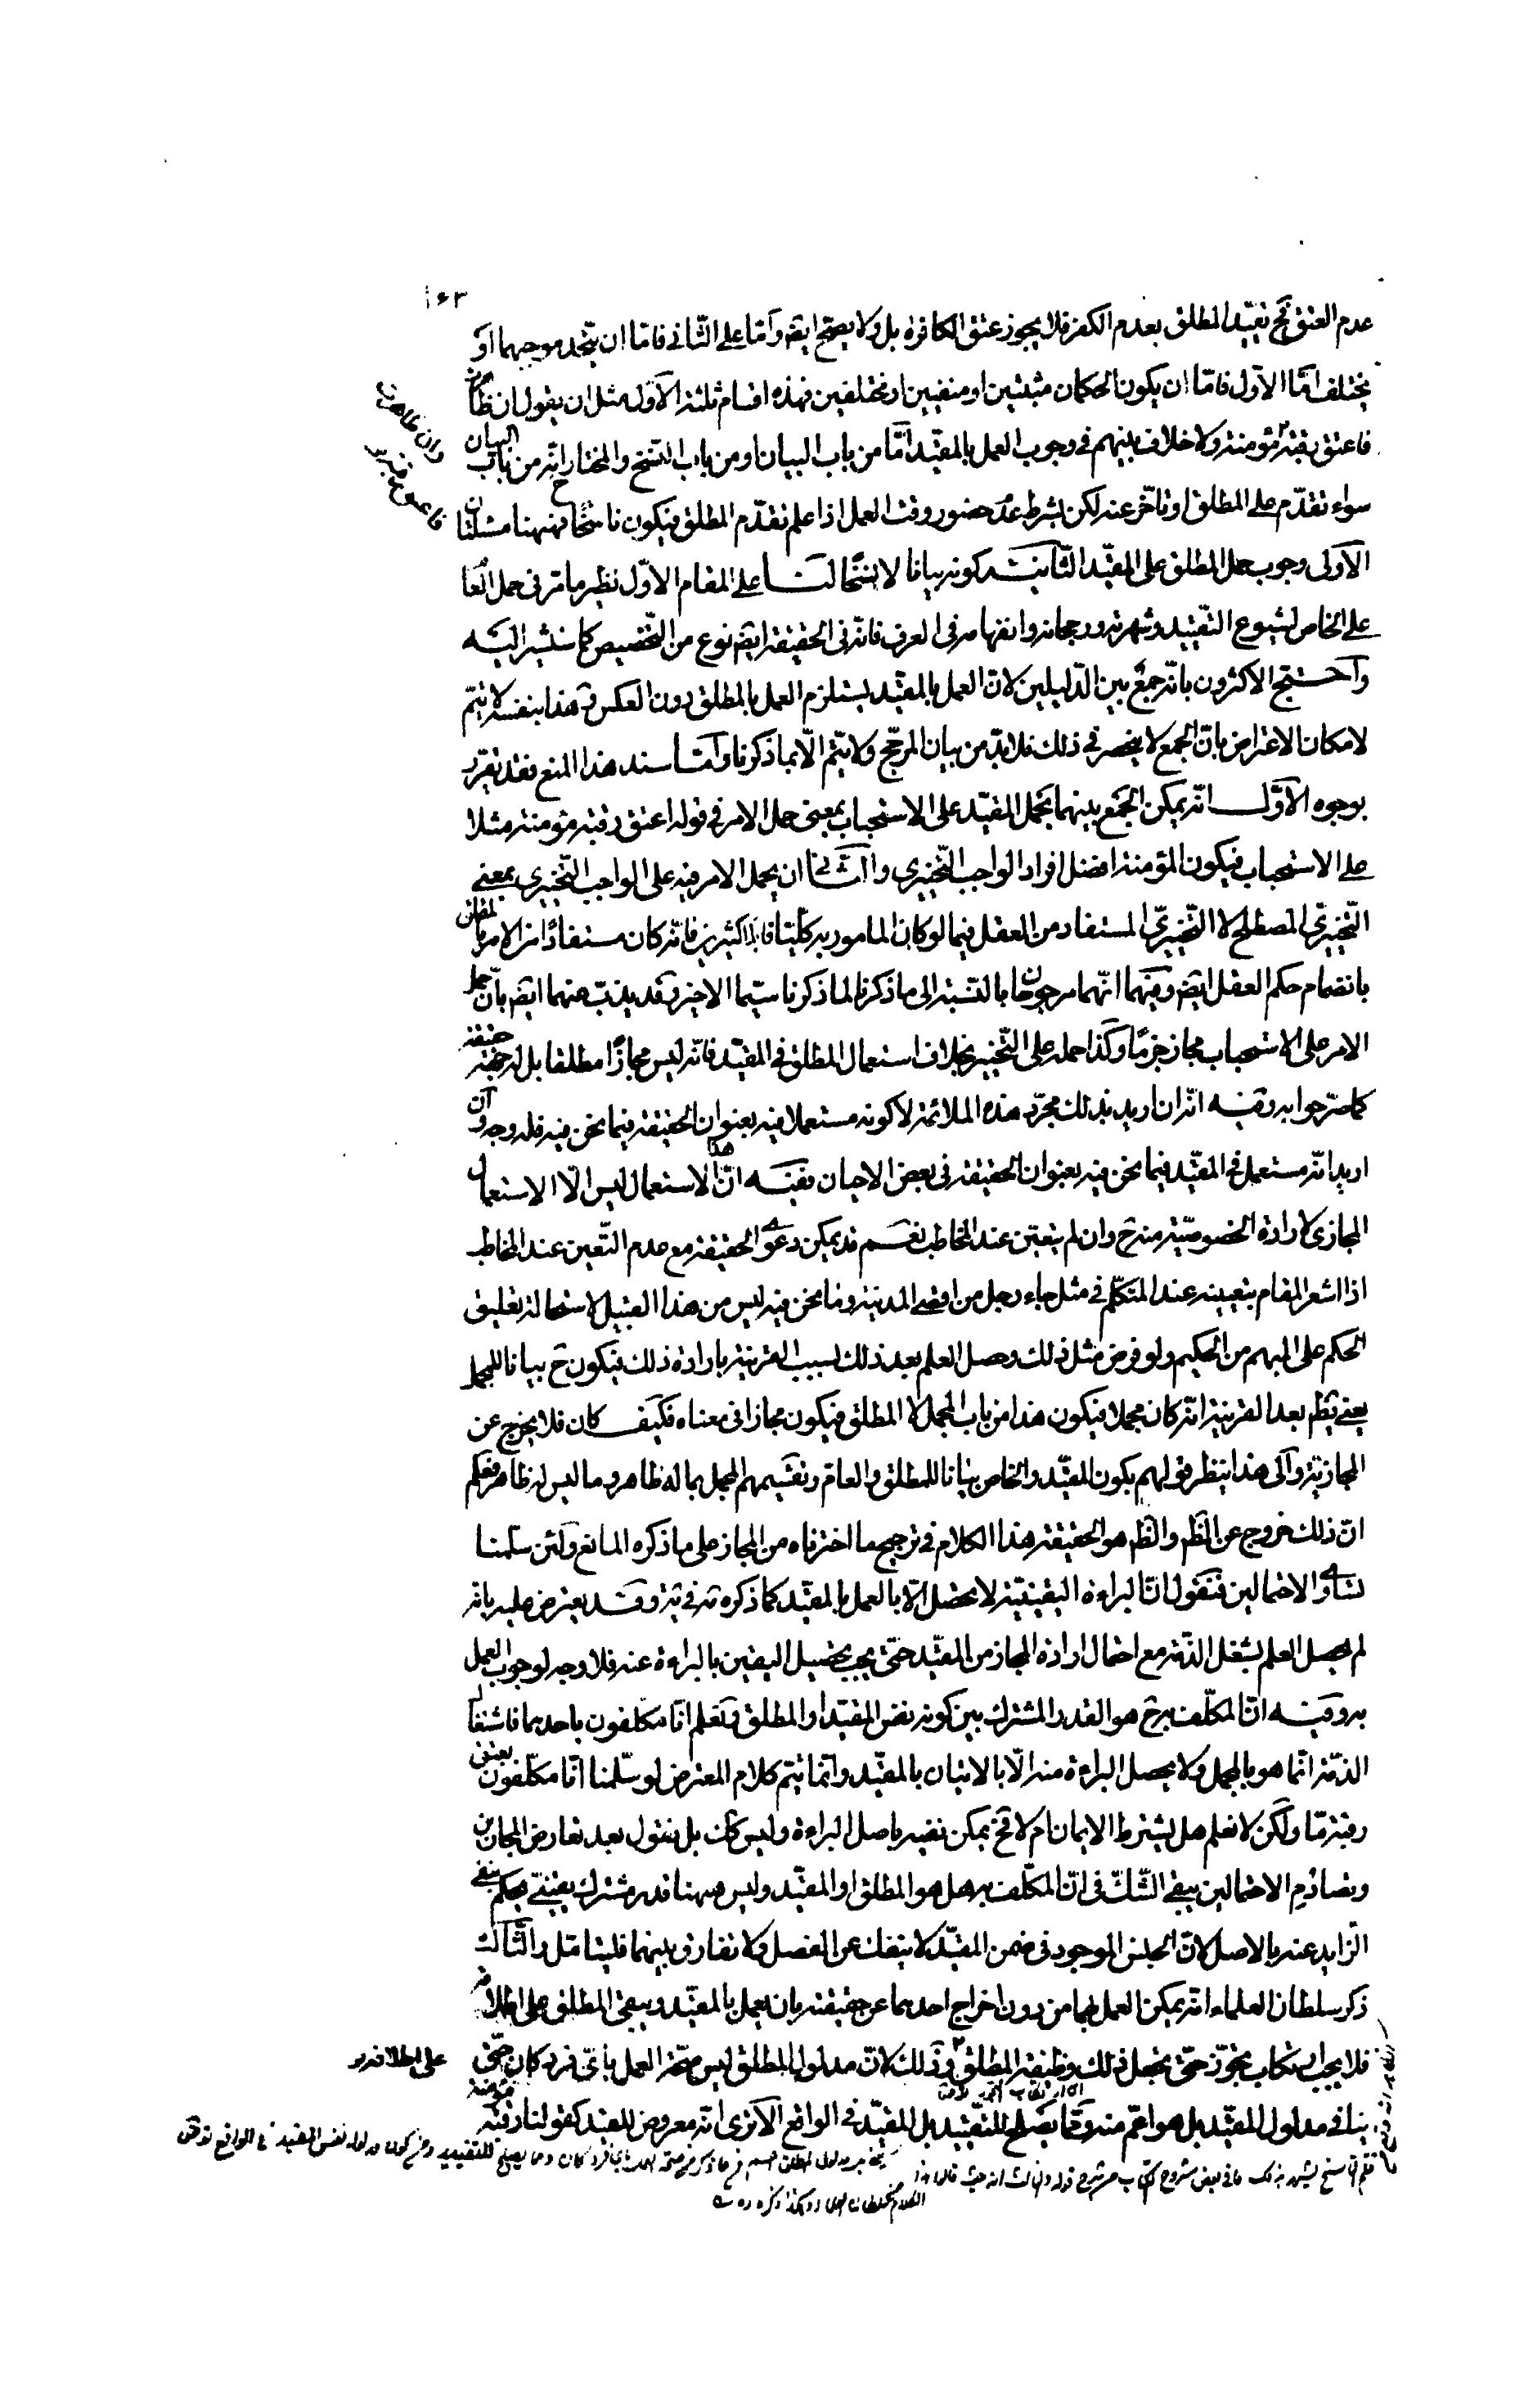 ١٤٣
عدم العتق فح تقيّد المطلق بعدم الكفر فلا يجوز عتق الكافرة بل ولا يصحّ ايضا وامّا على الثّاني فامّا ان يتّحد موجبهما او
يختلف امّا الاوّل فامّا ان يكون الحكمان مثبتين او منفيين او مختلفين فهذه اقسام ثلثة الاوّل مثل ان يقول ان ظاهرت
فاعتق رقبة مؤمنة ولا خلاف بينهم في وجوب العمل بالمقيّد امّا من باب البيان او من باب النسخ والمختار انّه من باب البيان
سواء تقدّم على المطلق او تاخّر عنه لكن بشرط عدم حضور وقت العمل اذا علم تقدّم المطلق فيكون ناسخا فههنا مسئلتان
الاولى وجوب حمل المطلق على المقيّد الثّانية كونه بيانا لا نسخا لنا على المقام الاوّل نظير ما مرّ في حمل العام
على الخاص لشيوع التقييد وشهرته ورجحانه وانفهامه في العرف فانّه في الحقيقة ايضا نوع من التّخصيص كما سنشير اليه
واحتجّ الاكثرون بانّه جمع بين الدّليلين لانّ العمل بالمقيّد يستلزم العمل بالمطلق دون العكس وهذا بنفسه لا يتمّ
لامكان الاعتراض بانّ الجمع لا ينحصر في ذلك فلا بدّ من بيان المرجّح ولا يتمّ الّا بما ذكرنا وامّا سند هذا المنع فقد يقرّر
بوجوه الاوّل انّه يمكن الجمع بينهما بحمل المقيّد على الاستحباب بمعنى حمل الامر في قوله اعتق رقبة مؤمنة مثلا
على الاستحباب فيكون المؤمنة افضل افراد الواجب التّخييري والثّاني ان يحمل الامر فيه على الواجب التّخييري بمعنى
التّخييري المصطلح لا التّخييري المستفاد من العقل فيما لو كان المامور به كليّا قابلا لكثيرين فانّه كان مستفادا من الامر بالمطلق
بانضمام حكم العقل ايضا وفيهما انّهما مرجوحان بالنّسبة الى ما ذكرنا لما ذكرنا سيّما الاخير وقد يذبّ عنهما ايضا بانّ حمل
الامر على الاستحباب مجاز جزما وكذا حمله على التّخيير بخلاف استعمال المطلق في المقيّد فانّه ليس مجازا مطلقا بل له جهة حقيقة
كما صرّحوا به وفيه انّه ان اريد بذلك مجرّد هذه الملائمة لا كونه مستعملا فيه بعنوان الحقيقة فيما نحن فيه فله وجه وان
اريد انّه مستعمل في المقيّد فيما نحن فيه بعنوان الحقيقة في بعض الاحيان ففيه انّ هذا الاستعمال ليس الّا الاستعمال
المجازي لارادة الخصوصيّة منه ح وان لم يتعيّن عند المخاطب نعم قد يمكن دعوى الحقيقة مع عدم التّعيين عند المخاطب
اذا اشعر المقام بتعيينه عند المتكلّم في مثل جاء رجل من اقصى المدينة وما نحن فيه ليس من هذا القبيل لاستحالة تعليق
الحكم على المبهم من الحكيم ولو فرض مثل ذلك وحصل العلم بعد ذلك بسبب القرينة بارادة ذلك فيكون ح بيانا للمجمل
يعني يظهر بعد القرينة انّه كان مجملا فيكون هذا من باب المجمل لا المطلق فيكون مجازا في معناه فكيف كان فلا يخرج عن
المجازيّة والى هذا ينظر قولهم بكون المقيّد والخاص بيانا للمطلق والعام وتقسيمهم المجمل بما له ظاهر وما ليس له ظاهر فعلم
انّ ذلك خروج عن الظّم والظّم هو الحقيقة هذا الكلام في ترجيح ما اخترناه من المجاز على ما ذكره المانع ولئن سلّمنا
تساوي الاحتمالين فنقول انّ البراءة اليقينيّة لا تحصل الّا بالعمل بالمقيّد كما ذكره وقد يعترض عليه بانّه
لم يحصل العلم بشغل الذّمّة مع احتمال ارادة المجاز من المقيّد حتّى يجب تحصيل اليقين بالبراءة عنه فلا وجه لوجوب العمل
به وفيه انّ المكلّف به ح هو القدر المشترك بين كونه نفس المقيّد او المطلق ونعلم انّا مكلّفون باحدهما فاشتغال
الذّمّة انّما هو بالمجمل ولا يحصل البراءة منه الّا بالاتيان بالمقيّد وانّما يتمّ كلام المعترض لو سلّمنا انّا مكلّفون بعتق
رقبة ما ولكن لا نعلم هل يشترط الايمان ام لا فح يمكن نفيه باصل البراءة وليس كك بل نقول بعد تعارض المجازين
وتصادم الاحتمالين يبقى الشّكّ في انّ المكلّف به هل هو المطلق او المقيّد وليس ههنا قدر مشترك يقينيّ يحكم بنفي
الزّايد عنه بالاصل لانّ الجنس الموجود في ضمن المقيّد لا ينفك عن الفصل ولا تفارق بينهما فليتامّل والثّالث
ذكر سلطان العلماء انّه يمكن العمل بهما من دون اخراج احدهما عن حقيقته بان يعمل بالمقيّد ويبقى المطلق على اطلاقه
فلا يجب ارتكاب تجوّز حتّى يجعل ذلك وظيفة المطلق وذلك لانّ مدلول المطلق ليس صحّة العمل بايّ فرد كان حتّى
ينافي مدلول المقيّد بل هو اعمّ منه وممّا يصلح للتّقييد بل المقيّد في الواقع الا ترى انّه معروض للقيد كقولنا رقبة مؤمنة
وان ظاهرت
فاعتق رقبة
على اطلاقه